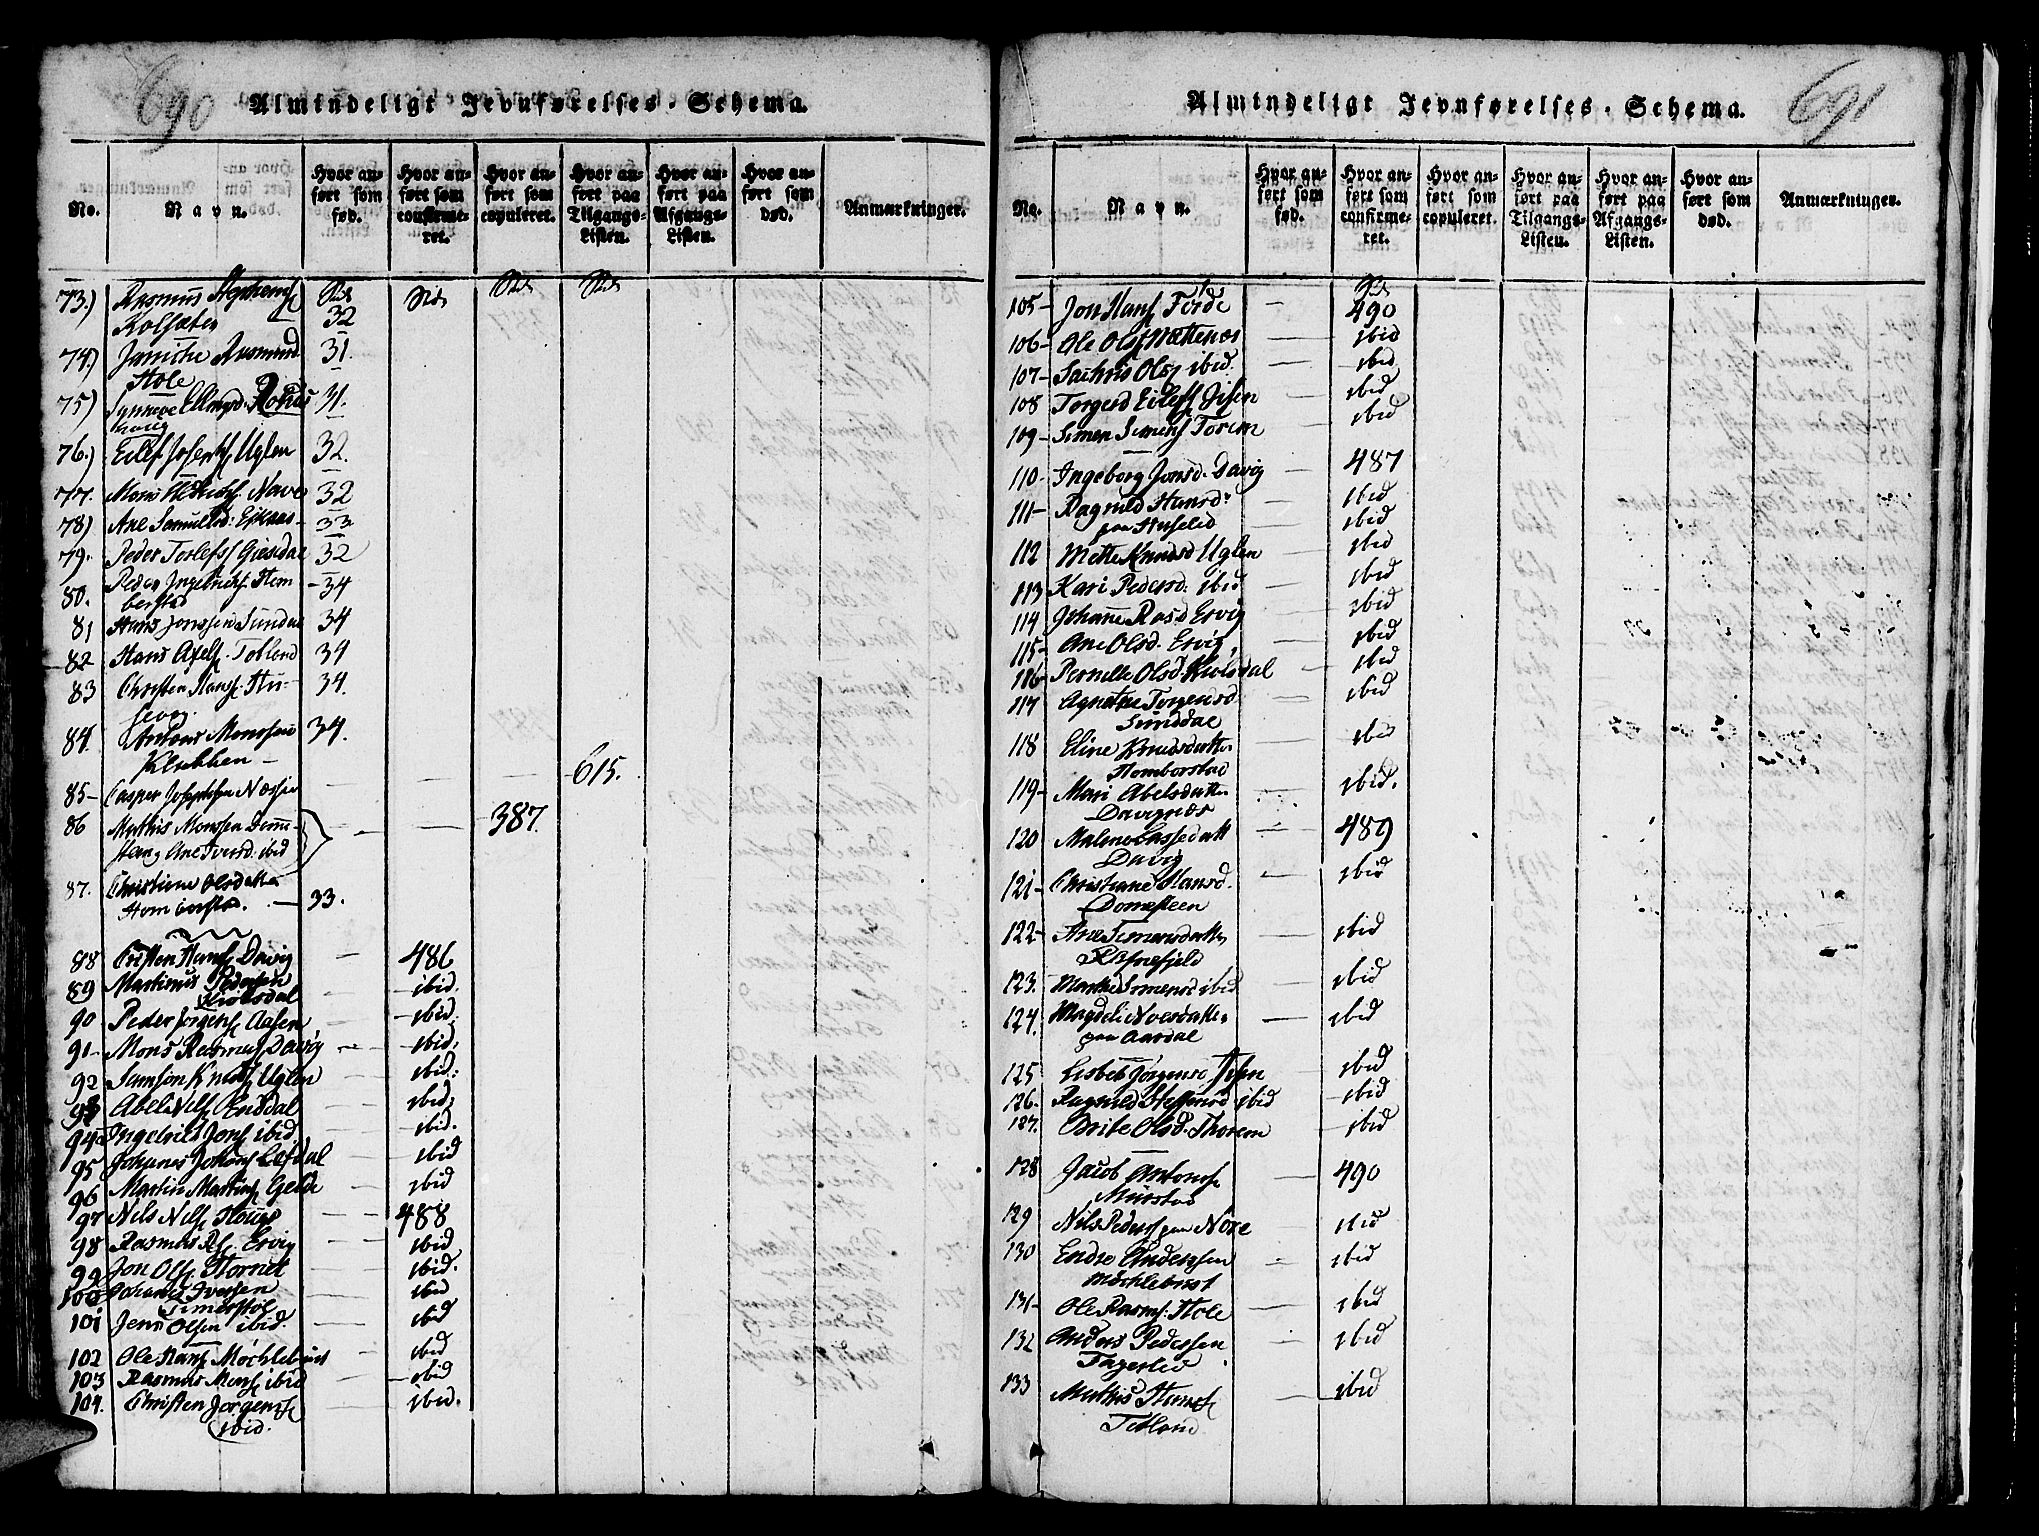 690
Almindeligt Jevnførelses-Schema.
No. Navn. Hvor anført som fød. Hvor anført som confirmeret. Hvor anført som copuleret. Hvor anført paa Tilgangs-Listen. Hvor anført paa Afgangs-Listen. Hvor anført som død. Anmærkninger.
73.) Rasmus
Kolsæter 32
74) 31.
Hole
75) Synneve 31.
haug
76.) Eilef Josephs Uglen 32.
77. Mons Nave 32
78) Ane Samuelsd: Eikaas 33
79. Peder Torlefs Giesdal 32
80. Peder Ingebricts Hom 34
berstad
81 Hans Jonssen Sundal 34
82 Hans Axels. Tobland 34
83 Christen Hans. Hu- 34.
sevog.
84. Antons Monssen 34.
Klubben
85- Casper Josephsen Næssen — — — 615.
86 Mathis Monssen Demme- — — 387.
stang Ane Iversd. ibid
87. Christiane Olsdatter
Homberstad. — 33.
88 Cristen Hans Davig — 486
89 Martinus Pedersen — ibid.
Kiolsdal
90 Peder Jørgens Aasen — ibid.
91- Mons Rasmus Davig — ibid.
92 Samson Knuds Uglen — ibid.
93 Abel Nils Endsdal — ibid.
94 Ingebrict Jons ibid — ibid.
95 Johanes Johans Lefdal — ibid
96 Martin Martins Geide ibid
97 Nils Nils Houge — 488
98 Rasmus Rs. Ervig — ibid
99 Jon Ols. Hornet — ibid.
100 Johanes Iverssen — ibid
Timberstøl
101 Jens Olsen ibid. — ibid
102 Ole Hans Møchlebust — ibid
103 Rasmus Mons ibid — ibid
104. Christen Jørgens — ibid.
ibid.
691
Almindeligt Jevnførelses-Schema.
No. Navn. Hvor anført som fød. Hvor anført som confirmeret. Hvor anført som copuleret. Hvor anført paa Tilgangs-Listen. Hvor anført paa Afgangs-Listen. Hvor anført som død. Anmærkninger.
105- Jon Hans Førde — 490
106- Ole Ols Mættenæs — ibid
107- Olss ibid. — ibid
108 Torgerd Eilefs — ibid
109- Simen Simens Torem — ibid
110- Ingeborg Jonsd. Davig — 487
111- Ragnild Hansd. — ibid
paa Huselid ibid
112 Mette Knudsd Uglen — ibid
113 Kari Pedersd. ibid — ibid
114 Johane Rasd Ervig — ibid
115- Ane Olsd. Ervig, — ibid
116 Pernille Olsd. Kiolsdal — ibid
117 Agnethe Torgersd. — ibid
Sunddal
118 Eline Knudsdatter — ibid
Homborstad
119- Mari Abelsdatter — ibid.
Davignæs
120 Malene Lassedatt — 489
Davig
121- Christiane Hansd. — ibid
Domesteen
122- Ane Simensdatter — ibid
Rysnefjeld
123. Marthe Simensd ibid — ibid
124. Magdeli — ibid
paa Aardal
125 Lisbeth Jørgensd — ibid
126. Ragnild ibid — ibid
127. Brite Olsd. Thorem — ibid
128 Jacob Antons — 490
Murstad
129 Nils Peders paa Nore — ibid
130 Endre Anderssen — ibid
Møchlebust
131- Ole Rasms. Hole — ibid
132 Anders Pederssen — ibid
Fagerlid
133 Mathis Hans — ibid
Tobland